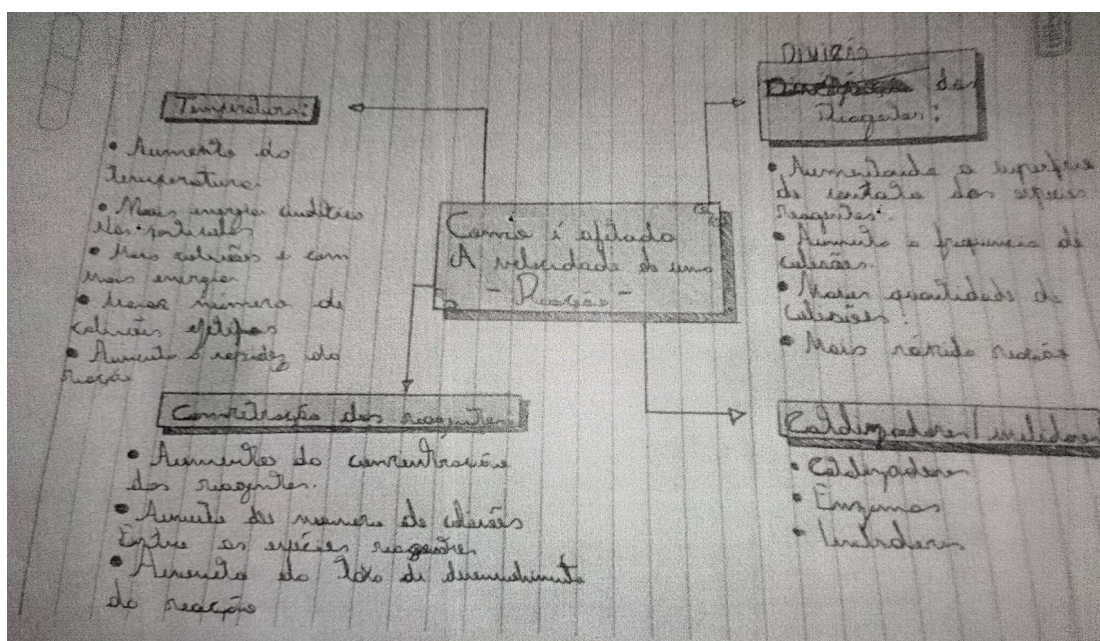 Temperatura:
• Aumento da
temperatura.
• Mais energia cinética
Nas partículas
• Mais colisões e com
mais energia
• Maior número de
colisões efetivas
• Aumenta a rapidez da
reação
Como é afetada
A velocidade de uma
- Reação -
DIVIZÃO
dos
Reagentes:
• Aumentando a superfície
de contato das
reagentes.
• Aumenta a frequencia de
colisões.
• Maior quantidade de
colisões!
• Mais rápida reação
Concentração dos reagentes:
• Aumentos da concentração
dos reagentes.
• Aumento do numero de colisões
Entre as espécies reagentes
• Aumento da taxa de desenvolvimento
da reacção
Catalizadores/inibidores
• Catalizadores
• Enzimas
• Inibidores